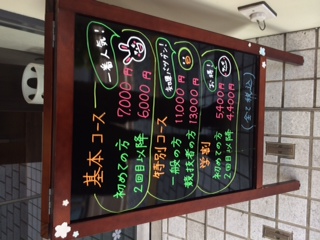 一番人気!
基本コース
初めての方 7,000円
2回目以降 6,000円
特別コース
一般の方 11,000円
競技者の方 13,000円
お得!
学割
初めての方 5,400円
2回目以降 4,400円
(全て税込)